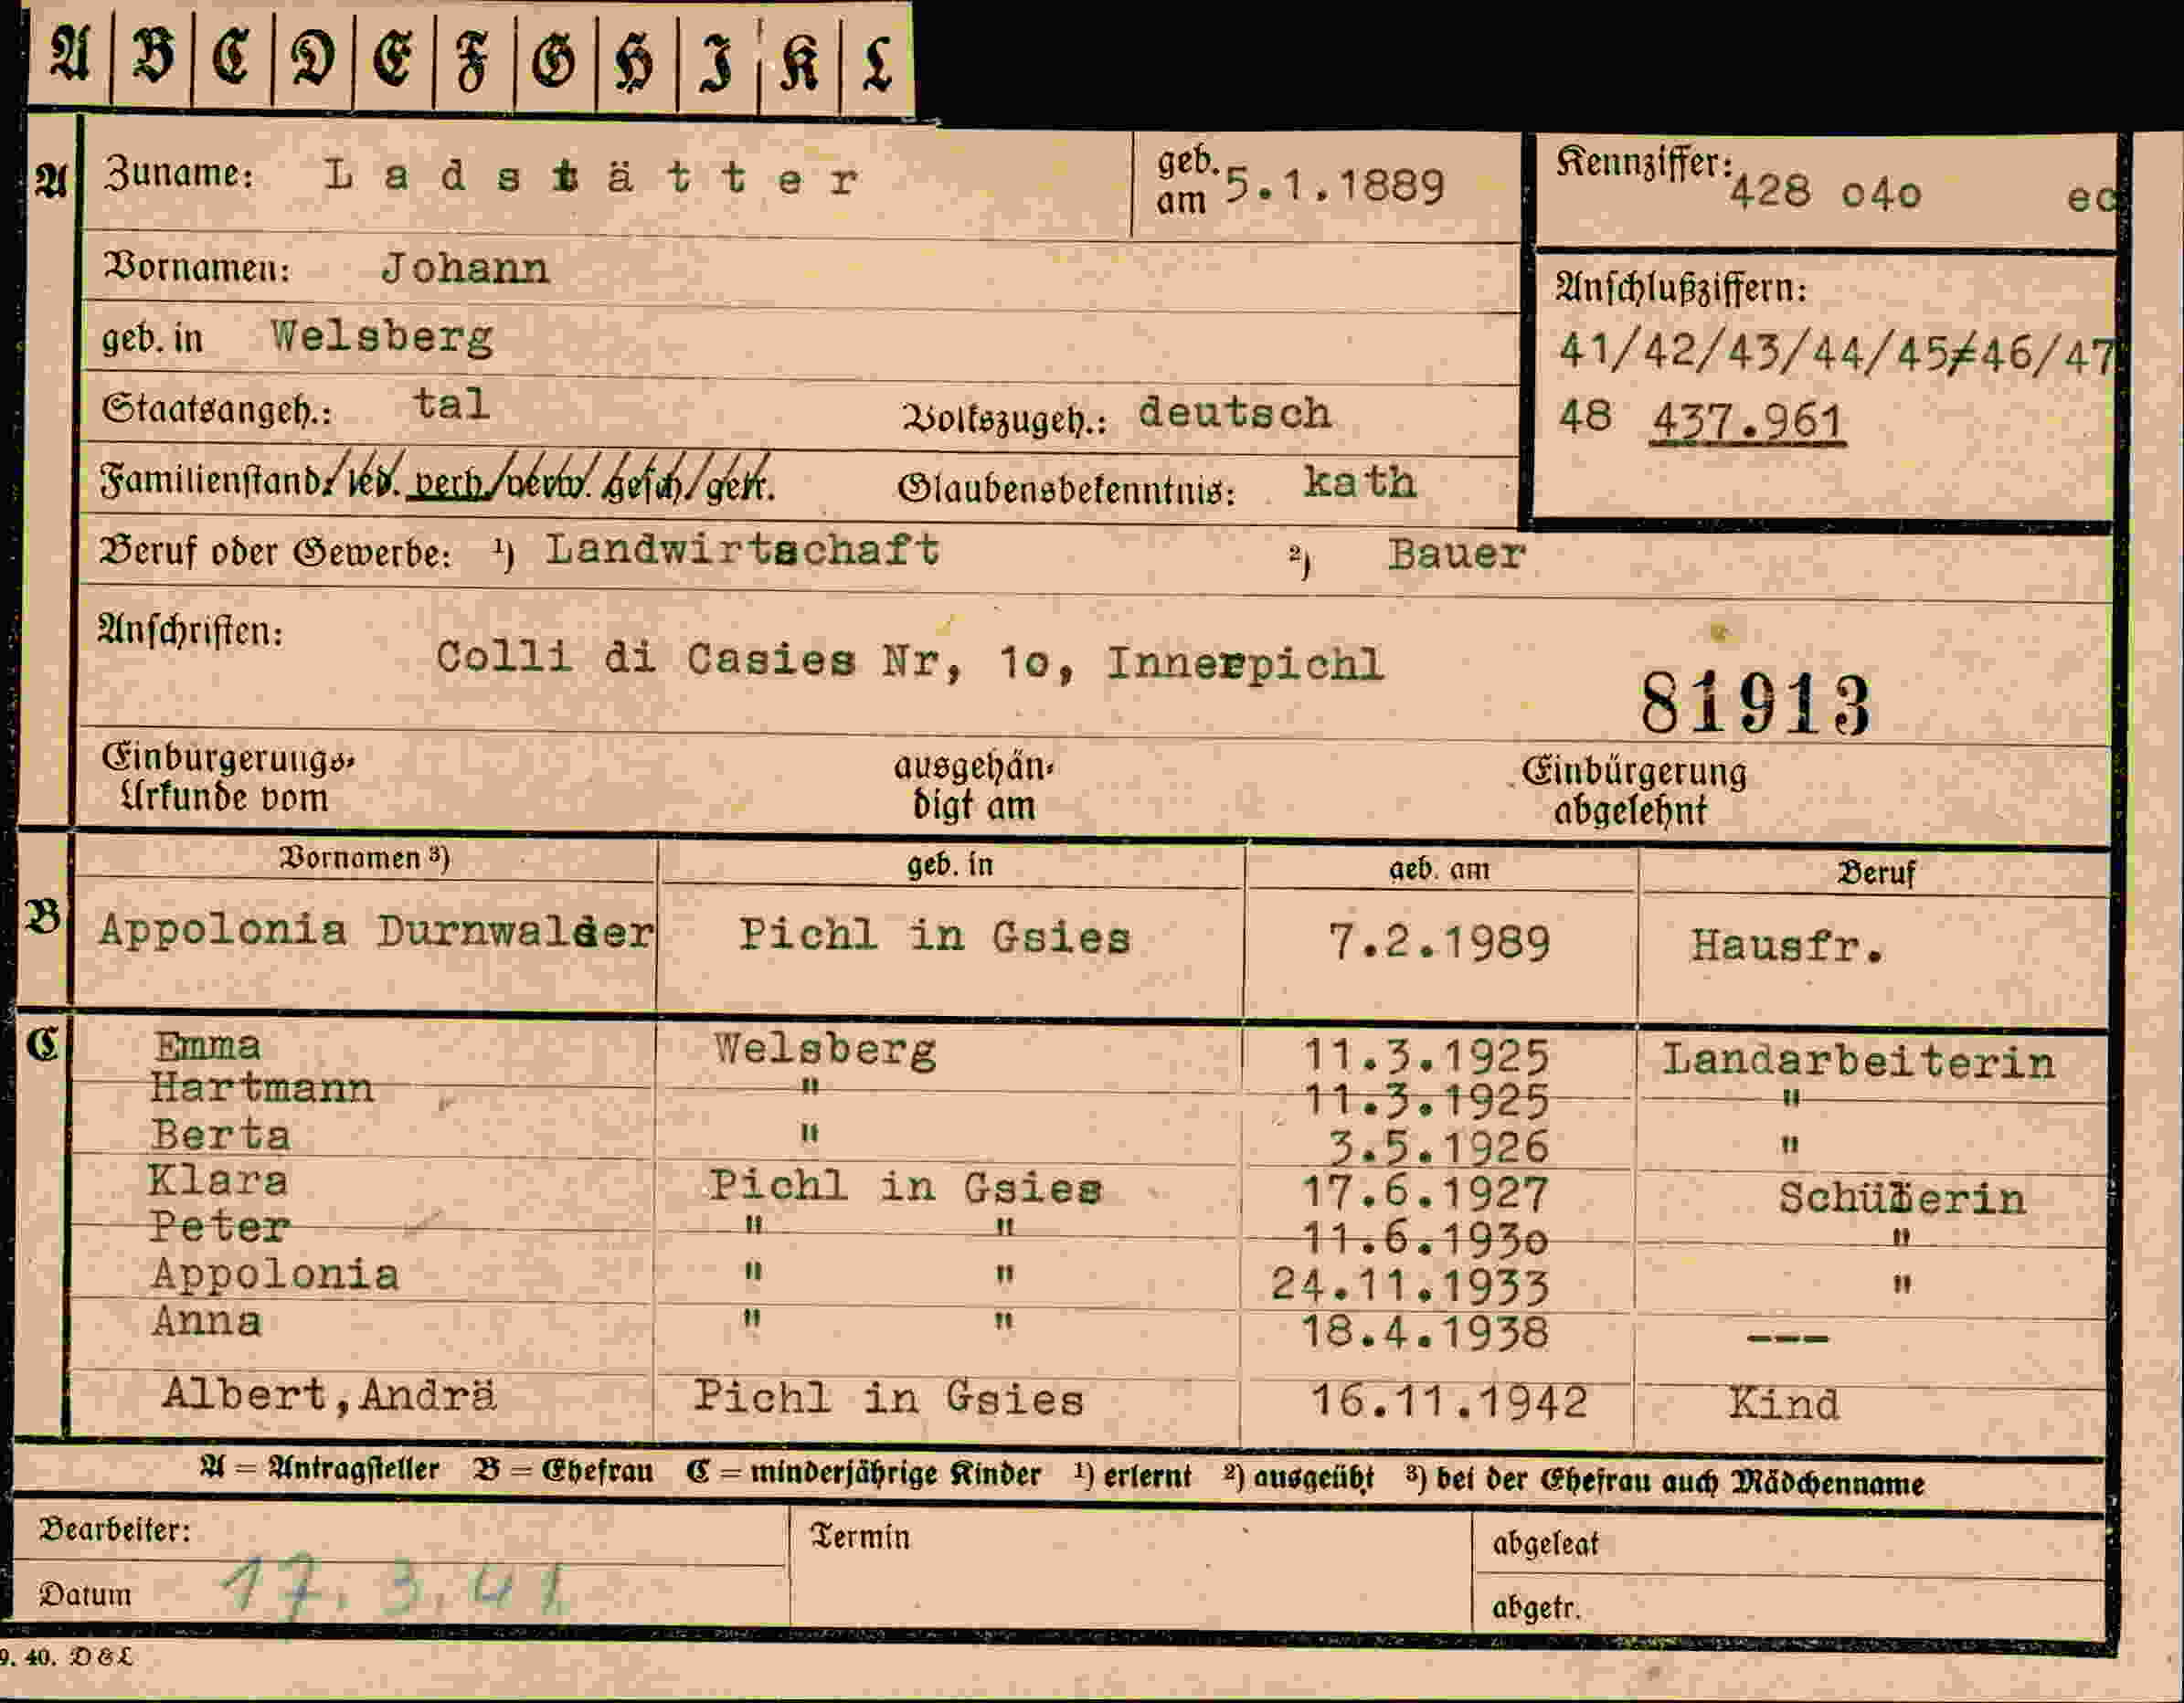 A B C D E F G H I K L
A Zuname: Ladstätter geb. am 5.1.1889 Kennziffer: 428 o4o
Vornamen: Johann
Anschlußziffern:
geb. in Welsberg 41/42/43/44/45/46/47
Staatsangeh.: tal Volkszugeh.: deutsch 48 437.961
Familienstand: led. verh. verw. gesch. getr. Glaubensbekenntnis: kath
Beruf oder Gewerbe: ¹) Landwirtschaft ²) Bauer
Anschriften: Colli di Casies Nr, 1o, Innerpichl
81913
Einbürgerungs- ausgehän- Einbürgerung
Urkunde vom digt am abgelehnt
Vornamen ³) geb. in geb. am Beruf
B Appolonia Durnwalder Pichl in Gsies 7.2.1989 Hausfr.
C Emma Welsberg 11.3.1925 Landarbeiterin
Hartmann " 11.3.1925 "
Berta " 3.5.1926 "
Klara Pichl in Gsies 17.6.1927 Schülerin
Peter " " 11.6.193o "
Appolonia " " 24.11.1933 "
Anna " " 18.4.1938 ---
Albert,Andrä Pichl in Gsies 16.11.1942 Kind
A = Antragsteller B = Ehefrau C = minderjährige Kinder ¹) erlernt ²) ausgeübt ³) bei der Ehefrau auch Mädchenname
Bearbeiter: Termin abgelegt
Datum 17.3.41 abgetr.
9. 40. D & L